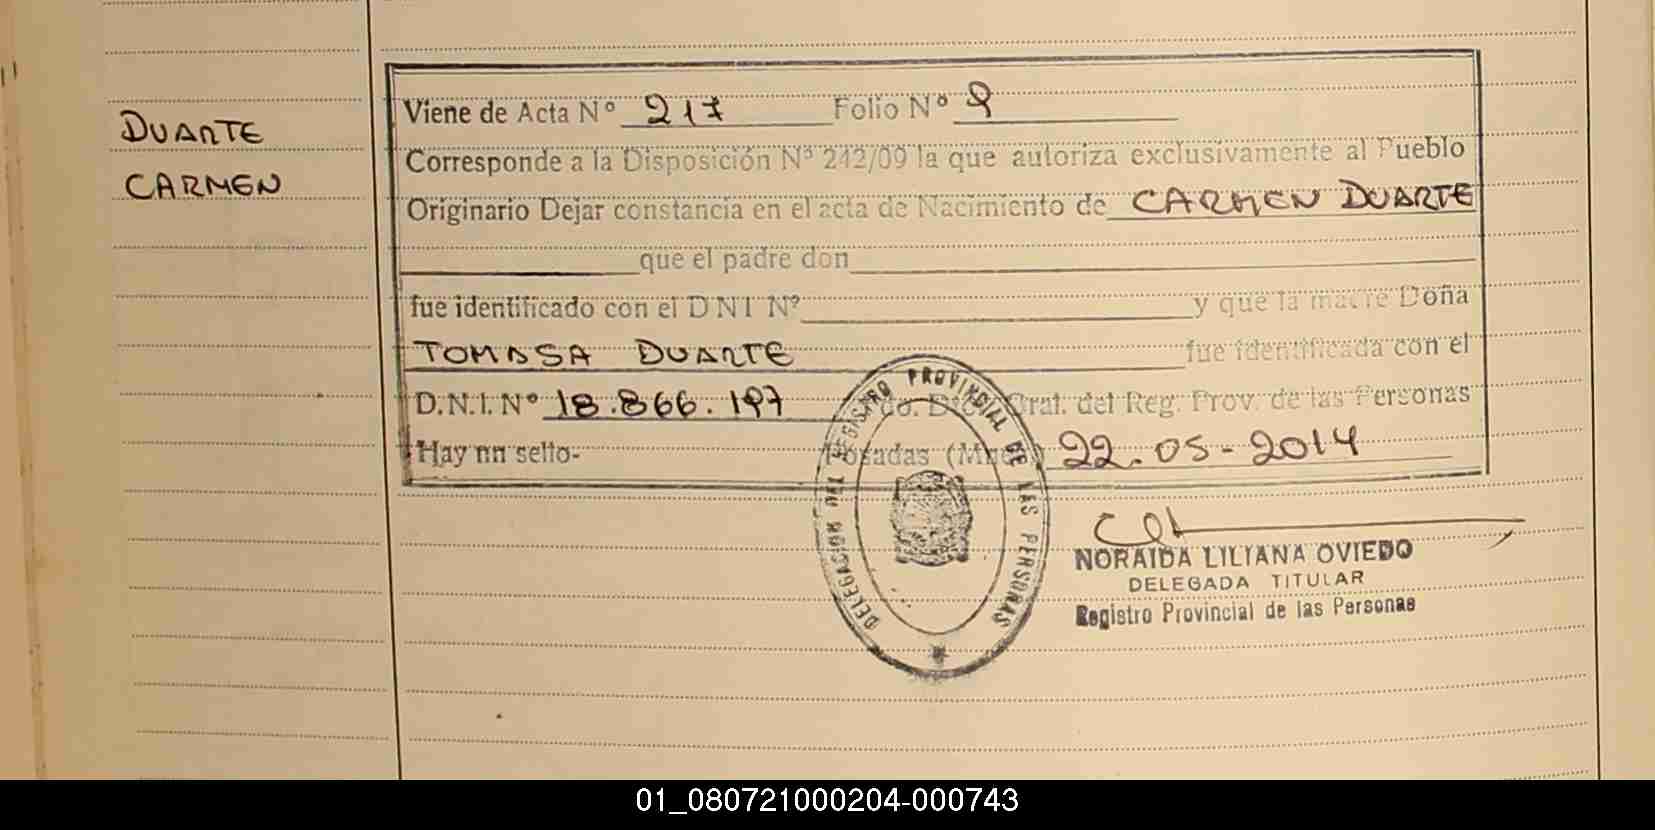 DUARTE
CARMEN
Viene de Acta Nº 217 Folio Nº 9
Corresponde a la Disposición Nº 242/09 la que autoriza exclusivamente al Pueblo
Originario Dejar constancia en el acta de Nacimiento de CARMEN DUARTE
que el padre don
fue identificado con el DNI Nº y que la madre Doña
TOMASA DUARTE fue identificada con el
D.N.I. Nº 18.866.197 do. Dtor. Gral. del Reg. Prov. de las Personas
Hay un sello- Posadas (Mnes) 22.05-2014
DELEGACION DEL REGISTRO PROVINCIAL DE LAS PERSONAS
NORAIDA LILIANA OVIEDO
DELEGADA TITULAR
Registro Provincial de las Personas
01_080721000204-000743